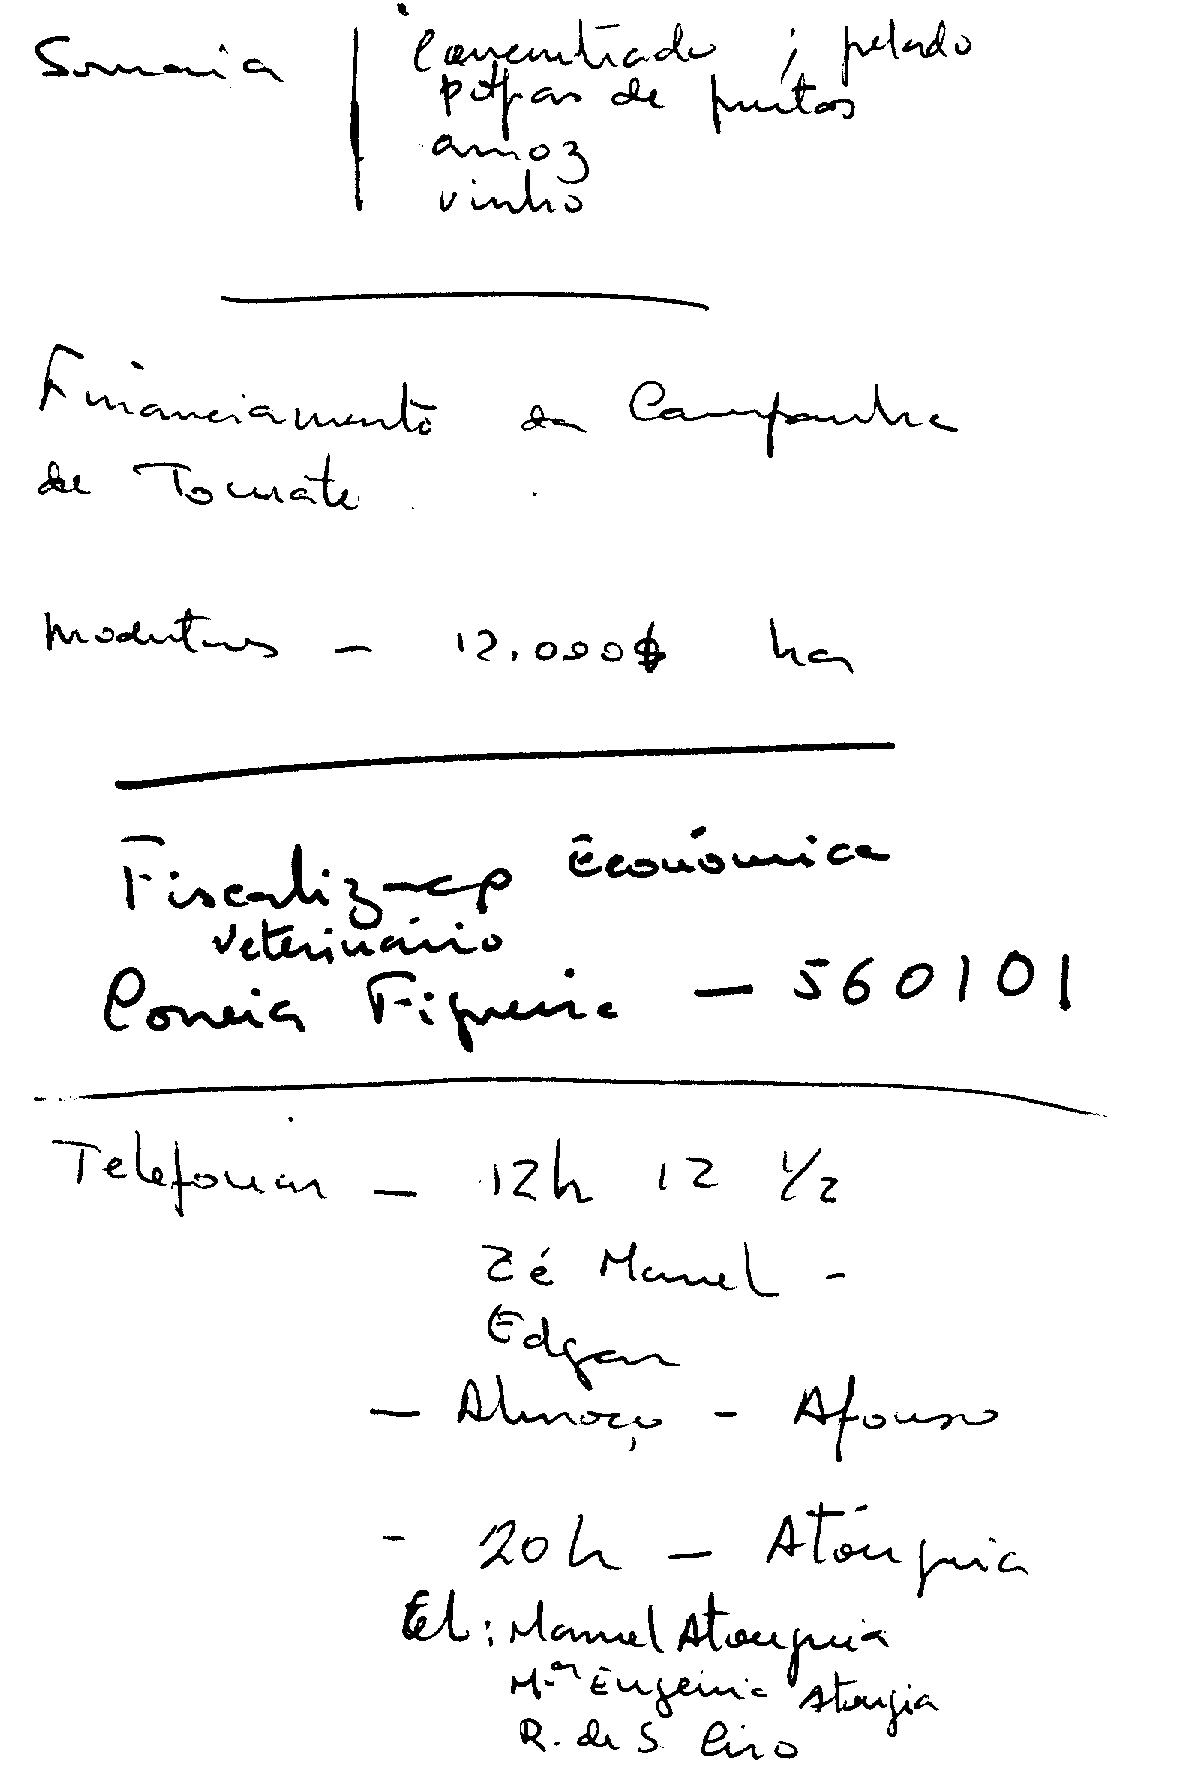 Somaia | Concentrado ; pelado
polpas de frutos
arroz
vinho
Financiamento da Campanha
de Tomate
12.000$ ha
Fiscalização Económica
veterinário
Correia Figueira - 560101
Telefonar - 12h 12 1/2
Zé Manuel -
Edgar
- Almoço - Afonso
- 20h - Atouguia
tel: Manuel Atouguia
Mª Eugenia Atougia
R. de S. Ciro